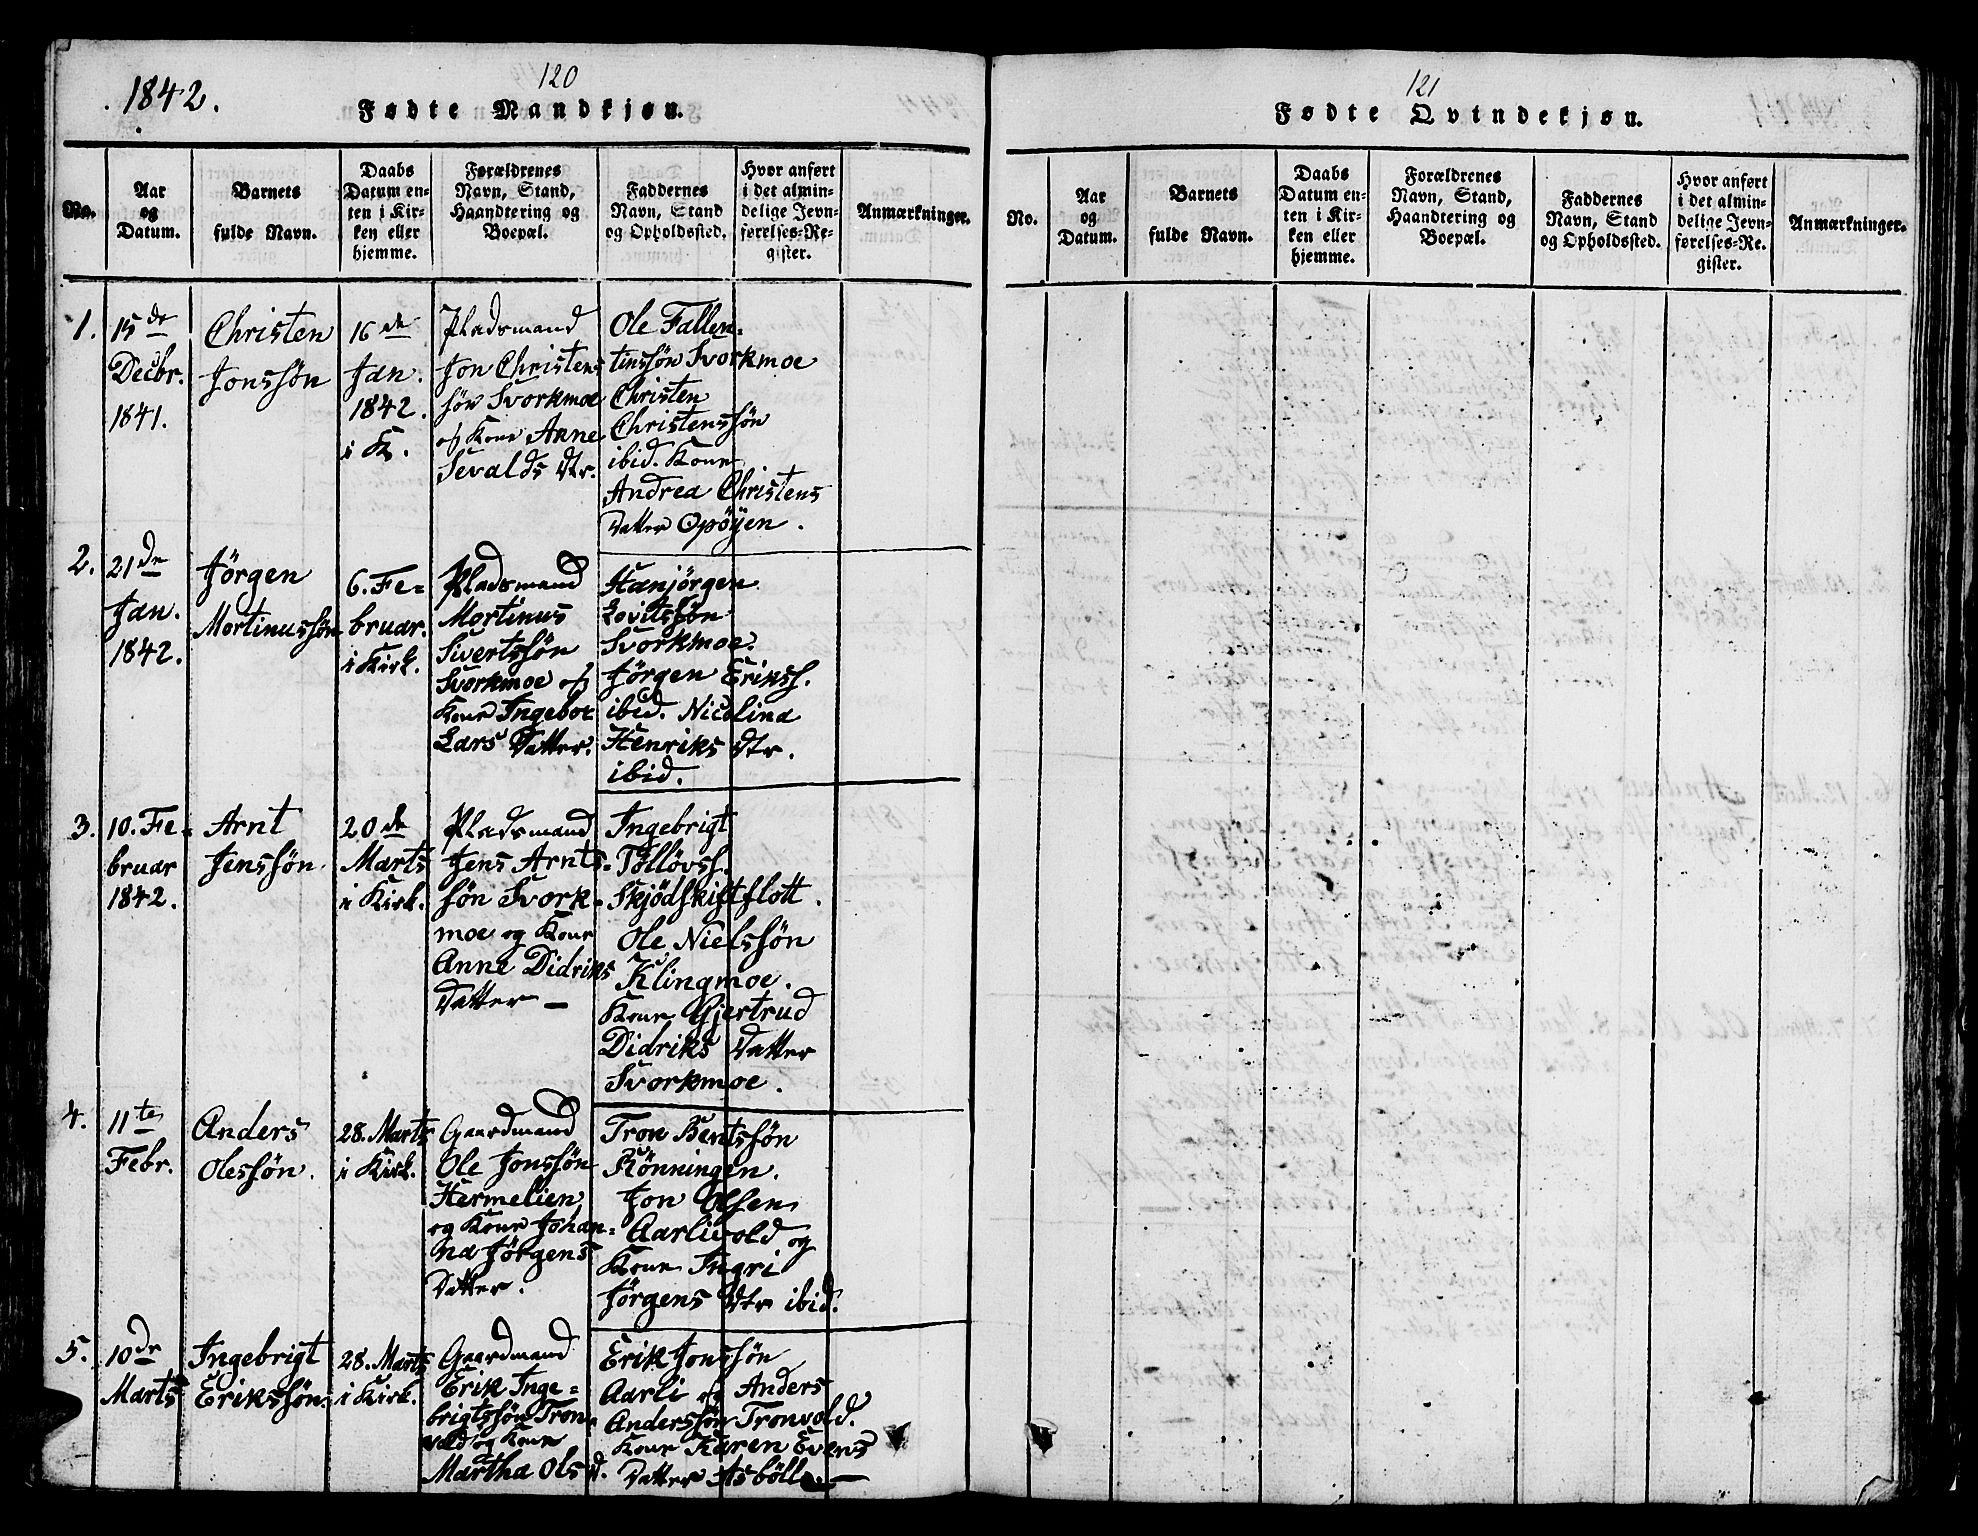 1842.
120
Fødte Mandkjøn.
No.
Aar
og
Datum.
Barnets
fulde Navn.
Daabs
Datum en-
ten i Kir-
ken eller
hjemme.
Forældrenes
Navn, Stand,
Haandtering og
Boepæl.
Faddernes
Navn, Stand
og Opholdssted.
Hvor anført
i det almin-
delige Jevn-
førelses-Re-
gister.
Anmærkninger.
1.
15de
Decbr.
1841.
Christen
Jonssøn
16de
Jan.
1842.
i K.
Pladsmand
Jon Christens
søn Svorkmoe
og Kone Anne
Sevalds Dtr.
Ole Fallen-
tinssøn Svorkmoe
Christen
Christenssøn
ibid. Kone
Andrea Christens
Datter Opöyen.
2.
21de
Jan.
1842.
Jörgen
Mortinussøn
6. Fe-
bruar.
i Kirk.
Pladsmand
Mortinus
Sivertssøn
Svorkmoe og
Kone Ingebor
Lars Datter.
Hanjörgen
Lovitssøn
Svorkmoe.
Jörgen Erikss.
ibid. Nicolina
Henriks Dtr.
ibid.
3.
10. Fe-
bruar
1842.
Arnt
Jenssøn
20de
Marts
i Kirk.
Pladsmand
Jens Arnts-
søn Svork-
moe og Kone
Anne Didriks
Datter —
Ingebrigt
Tollövs.
Skjödskiftslott.
Ole Nielssøn
Klingmoe.
Kone Gjertrud
Didriks Datter
Svorkmoe.
4.
11te
Febr.
Anders
Olessøn.
28. Marts
i Kirk.
Gaardmand
Ole Jonssøn
Hermelien
og Kone Johan-
na Jörgens
Datter.
Tron Bentssøn
Rönningen.
Jon Olsen
Aarlivold og
Kone Ingri
Jörgens Dtr ibid.
5.
10de
Marts
Ingebrigt
Erikssøn.
28. Marts
i Kirk.
Gaardmand
Erik Inge-
brigtssøn Tron-
vold og Kone
Martha Ols d.
Erik Jonssøn
Aarli og Anders
Anderssøn Tronvold.
Kone Karen Evens
Datter Asbölle. —
121
Fødte Qvindekjøn.
No.
Aar
og
Datum.
Barnets
fulde Navn.
Daabs
Datum en-
ten i Kir-
ken eller
hjemme.
Forældrenes
Navn, Stand,
Haandtering og
Boepæl.
Faddernes
Navn, Stand
og Opholdssted.
Hvor anført
i det almin-
delige Jevn-
førelses-Re-
gister.
Anmærkninger.